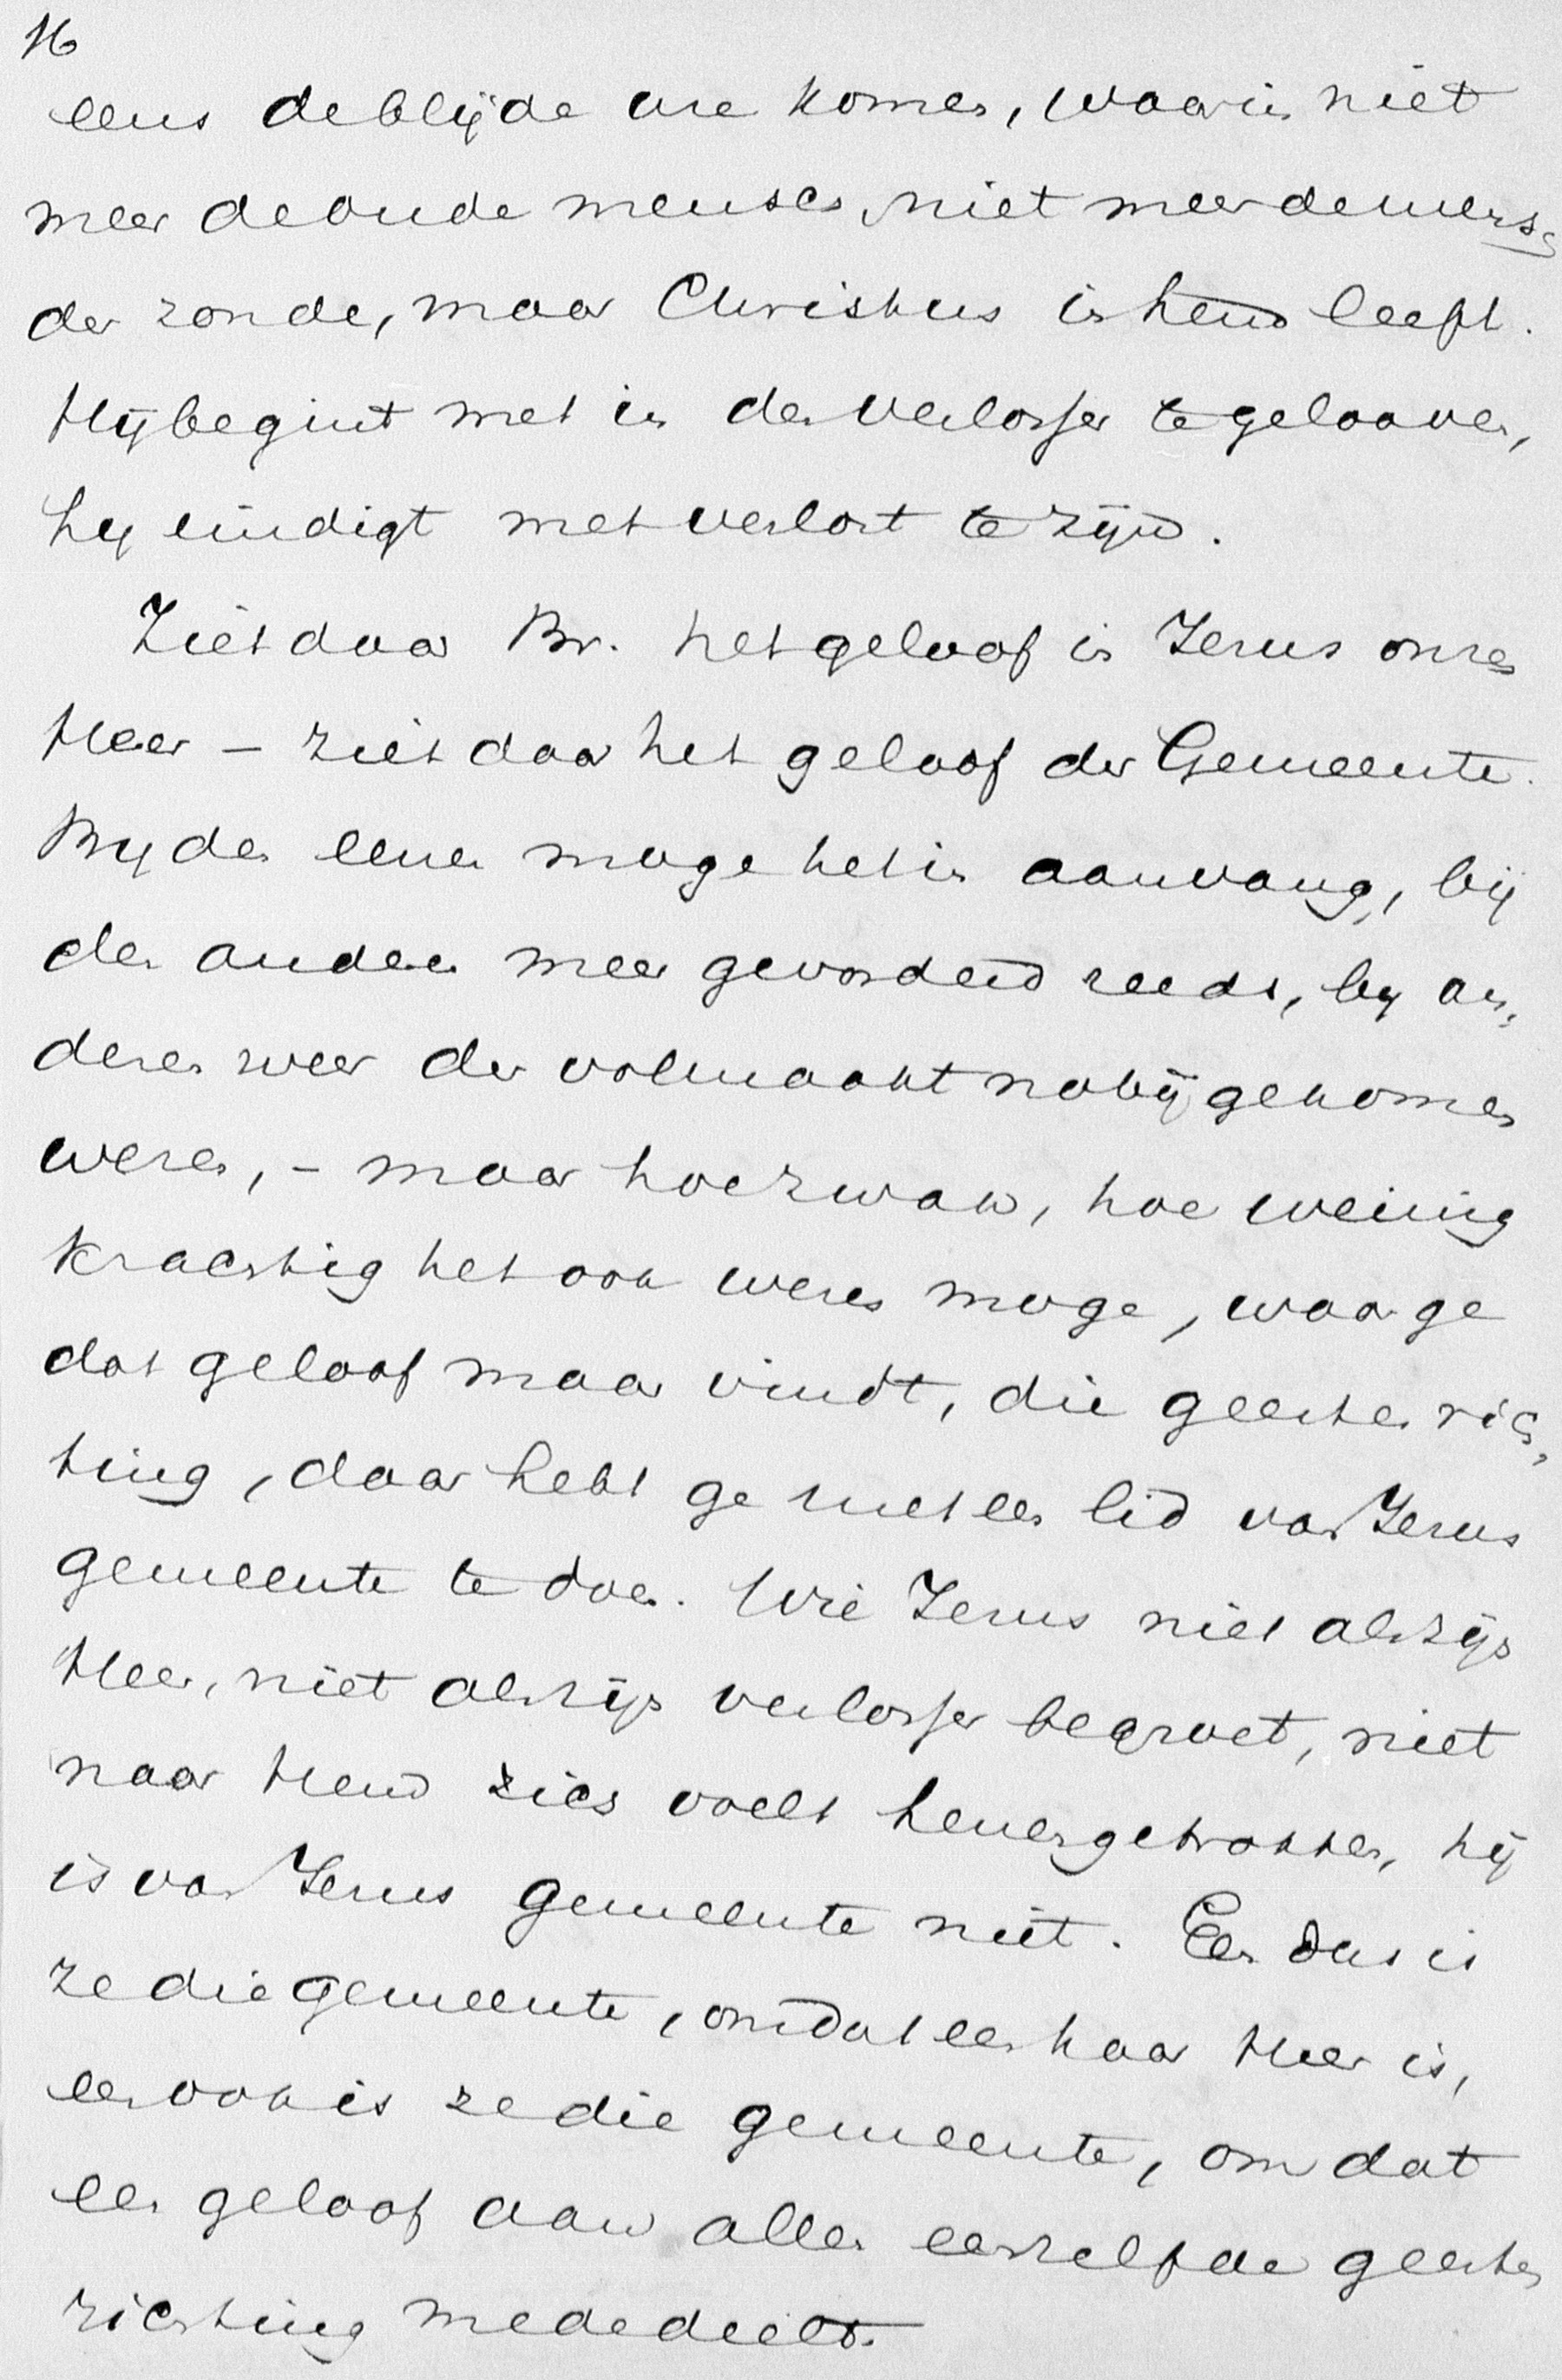 16
eens de blijde ure komen, waarin niet
meer de oude mensch, niet meer de mensch
der zonde, maar Christus in hem leeft.
Hij begint met in den Verlosser te gelooven,
hij eindigt met verlost te zijn.
Ziet daar Br. het geloof in Jezus onzen
Heer – ziet daar het geloof der Gemeente.
Bij den eenen moge het in aanvang, bij
den anderen meer gevorderd reeds, bij an„
deren weer der volmaakt nabij gekomen
wezen, – maar hoe zwak, hoe weinig
krachtig het ook wezen moge, waar ge
dat geloof maar vindt, die geestesrich„
ting, daar hebt ge met een lid van Jezus
gemeente te doen. Wie Jezus niet als zijn
Heer, niet als zijn verlosser begroet, niet
naar Hem zich voelt henengetrokken, hij
is van Jezus gemeente niet. Een dus is
ze die gemeente, omdat een haar Heer is,
een ook is ze die gemeente, omdat
een geloof aan allen eenzelfde geestes
richting mededeelt.